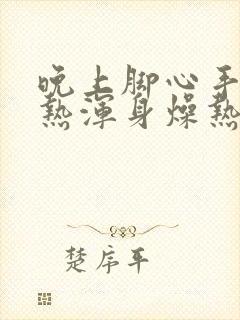 晚上脚心手
热浑身燥热
楚序平